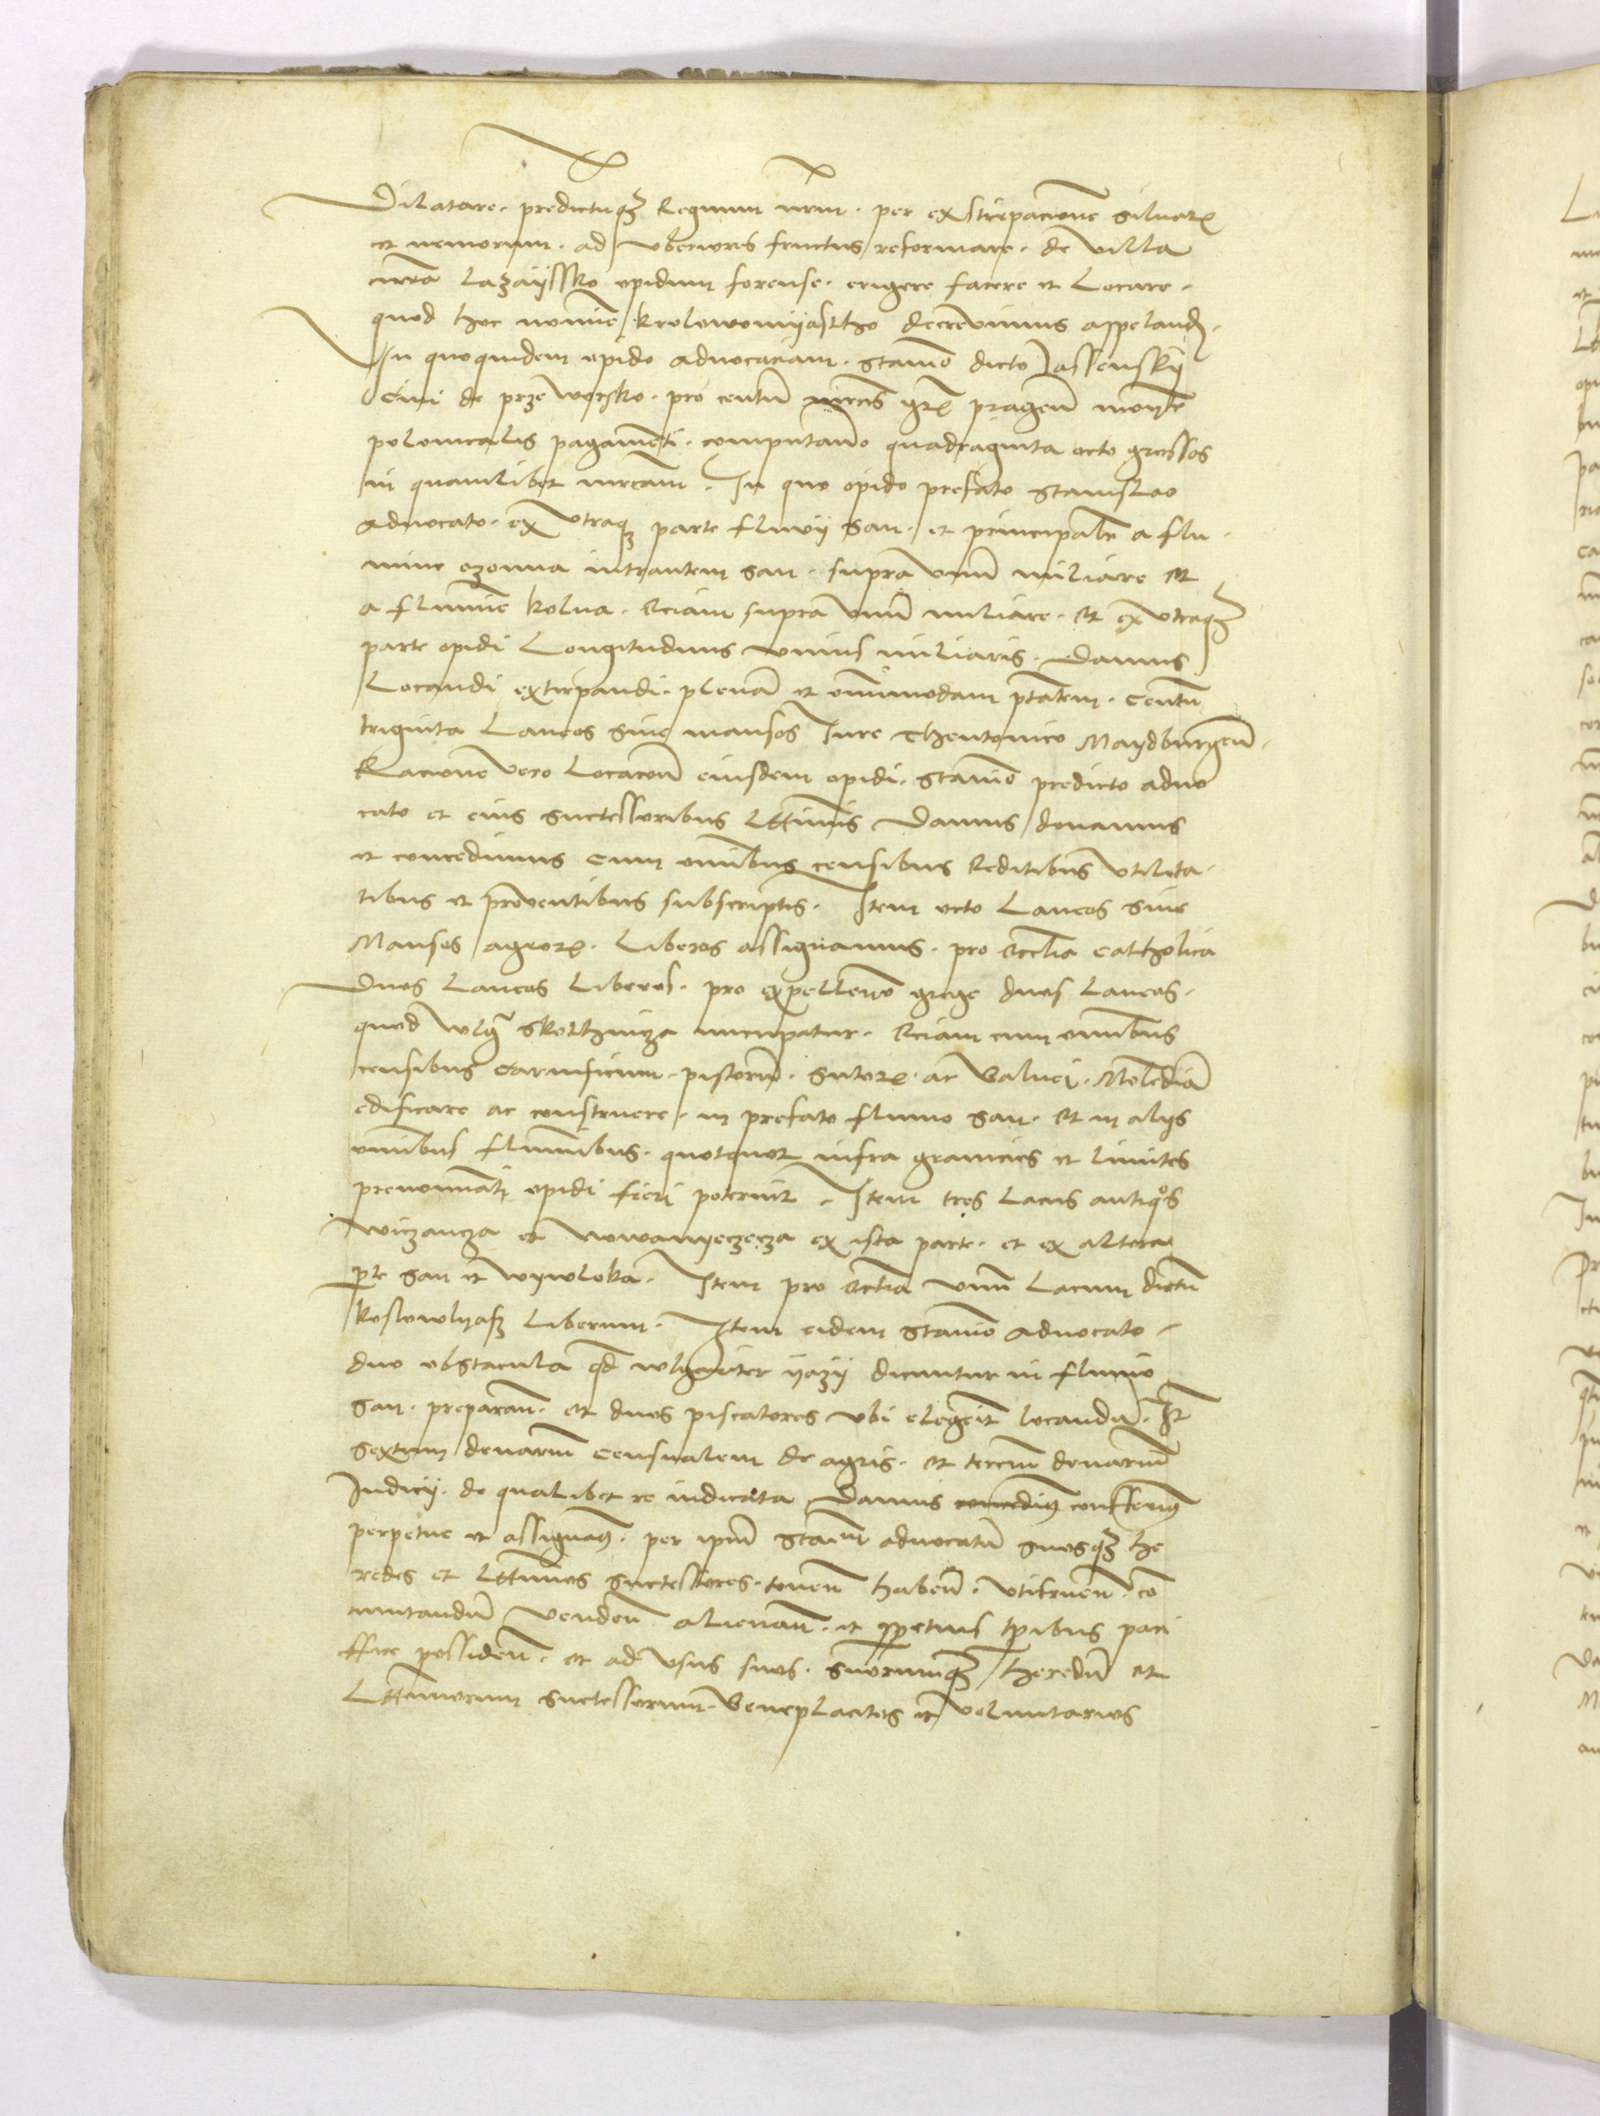 Dilatare. predictuqz Regnum nrm. per exstirpacione siluarz
et nemorum. ad vberiores fructus reformare. de villa
nra Lazayssko opidum forense. erigere facere et Locare.
quod hoc nomine krolowomyastho decreuimus appeland.
In quoquidem opido aduocatiam. Stanio dicto Jassenskij
Ciui de przeworsko. pro centu mrcis grz pragen monete
polonicalis pagamenti. computando quadraginta octo grossos
in quamlibet mrcam. In quo opido prefato Stanislao
Aduocato. ex vtraqz parte fluuij San. et principalr a flu
mine ozonna intrantem San. supra vnu miliare et
a flumine kolna. Eciam supra vnu miliare. et ex vtraqz
parte opidi Longitudinis vnius miliaris. Damus
Locandi extirpandi. plena et omnimodam ptatem. Centu
triginta Laneos siue mansos Jure Theutonico Maydburgen.
Racione vero Locacom eiusdem opidi. Stanio predicto aduo
cato et eius successoribus Lttimis Damus donamus
et concedimus cum omnibus censibus Reditibus vtilita
tibus et prouentibus subscriptis. Item octo Laneos siue
Mansos agrorz. Liberos assignamus. pro Ecclia catholica
Duos Laneos Liberos. pro expellendo grege duos Laneos.
quod wlgr skotthnicza nuncupatur. Eciam cum omnibus
censibus Carnificum. pistorum. Sutorz. ac Balnei. Molendia
edificare ac construere. in prefato fluuio San. et in alijs
omnibus fluminibus. quotquot infra granicies et limites
prenominati opidi fieri poterunt. Item tres Lacus antiquos
wiczancza et Nowamyeczecza ex ista parte. et ex altera
pte San et wywloka. Item pro Ecclia vnu Lacum dictu
koslowlyasz Liberum. Item eidem Stanio Aduocato
duo obstacula qd wlgariter yazy dicuntur in fluuio
San. preparan. et duos piscatores vbi elegerit locandu. It
Sextum denarium Censualem de agris. et tercium denarium
Judicij. de qualibet re iudicata Damus concedimus conferimus
perpetue et assignamus. per ipm Stanium aduocatu suosqz he
redes et Lttimos successores. tenen haben. vtifruen. co
mutandum venden alienan. et perpetuis tpibus paci
ffice possiden. et ad vsus suos. suorumqz heredu et
Lttimorum successorum. Beneplacitos et voluntarios